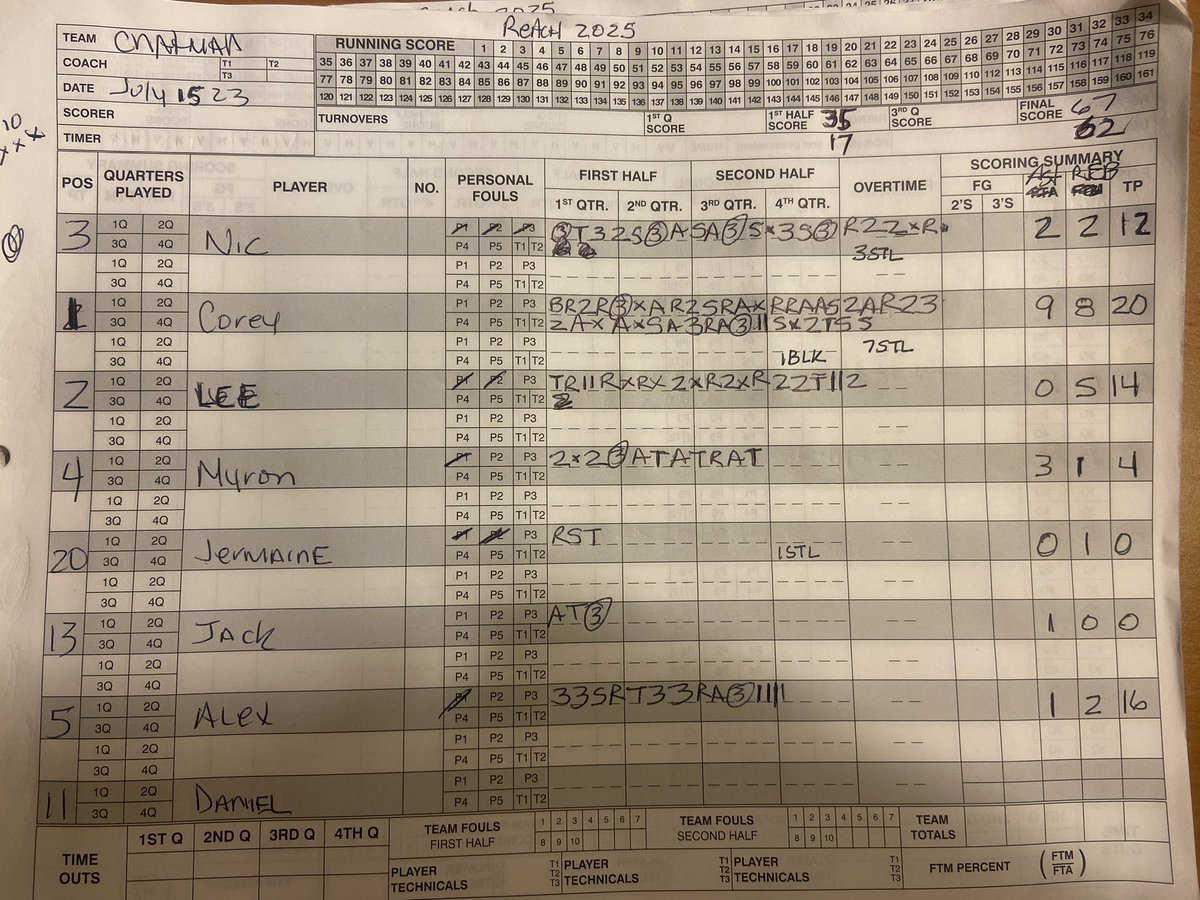 REACH 2025
TEAM CHATMAN
COACH T1 T2 T3
DATE July 15 23
SCORER
TIMER
RUNNING SCORE 1 2 3 4 5 6 7 8 9 10 11 12 13 14 15 16 17 18 19 20 21 22 23 24 25 26 27 28 29 30 31 32 33 34
35 36 37 38 39 40 41 42 43 44 45 46 47 48 49 50 51 52 53 54 55 56 57 58 59 60 61 62 63 64 65 66 67 68 69 70 71 72 73 74 75 76
77 78 79 80 81 82 83 84 85 86 87 88 89 90 91 92 93 94 95 96 97 98 99 100 101 102 103 104 105 106 107 108 109 110 111 112 113 114 115 116 117 118 119
120 121 122 123 124 125 126 127 128 129 130 131 132 133 134 135 136 137 138 139 140 141 142 143 144 145 146 147 148 149 150 151 152 153 154 155 156 157 158 159 160 161
TURNOVERS 1ST Q SCORE 1ST HALF SCORE 35 3RD Q SCORE FINAL SCORE 67
17 62
10
xxx
POS QUARTERS PLAYED PLAYER NO. PERSONAL FOULS FIRST HALF SECOND HALF OVERTIME SCORING SUMMARY
1ST QTR. 2ND QTR. 3RD QTR. 4TH QTR. FG 2'S 3'S AST REB TP
3 1Q 2Q 3Q 4Q Nic P1 P2 P3 P4 P5 T1 T2 3T32S3ASA3Sx3S3R22xR 2 2 12
1Q 2Q 3Q 4Q P1 P2 P3 P4 P5 T1 T2 3STL
1 1Q 2Q 3Q 4Q Corey P1 P2 P3 P4 P5 T1 T2 BR2R3xAR2SRAxRRAAS2AR23 9 8 20
2AxAxSA3RA311Sx2TSS
1Q 2Q 3Q 4Q P1 P2 P3 P4 P5 T1 T2 1BLK 7STL
2 1Q 2Q 3Q 4Q LEE P1 P2 P3 P4 P5 T1 T2 TR11RxRx2xR2xR22T112 0 5 14
1Q 2Q 3Q 4Q P1 P2 P3 P4 P5 T1 T2
4 1Q 2Q 3Q 4Q Myron P1 P2 P3 P4 P5 T1 T2 2x23ATATRAT 3 1 4
1Q 2Q 3Q 4Q P1 P2 P3 P4 P5 T1 T2
20 1Q 2Q 3Q 4Q JERMAINE P1 P2 P3 P4 P5 T1 T2 RST 1STL 0 1 0
1Q 2Q 3Q 4Q P1 P2 P3 P4 P5 T1 T2
13 1Q 2Q 3Q 4Q JACK P1 P2 P3 P4 P5 T1 T2 AT3 1 0 0
1Q 2Q 3Q 4Q P1 P2 P3 P4 P5 T1 T2
5 1Q 2Q 3Q 4Q ALEX P1 P2 P3 P4 P5 T1 T2 33SRT33RA31111 1 2 16
1Q 2Q 3Q 4Q P1 P2 P3 P4 P5 T1 T2
11 1Q 2Q 3Q 4Q DANIEL P1 P2 P3 P4 P5 T1 T2
TIME OUTS 1ST Q 2ND Q 3RD Q 4TH Q
TEAM FOULS FIRST HALF 1 2 3 4 5 6 7 8 9 10 TEAM FOULS SECOND HALF 1 2 3 4 5 6 7 8 9 10 TEAM TOTALS
PLAYER TECHNICALS T1 T2 T3 PLAYER TECHNICALS T1 T2 T3 PLAYER TECHNICALS T1 T2 T3 FTM PERCENT (FTM/FTA)